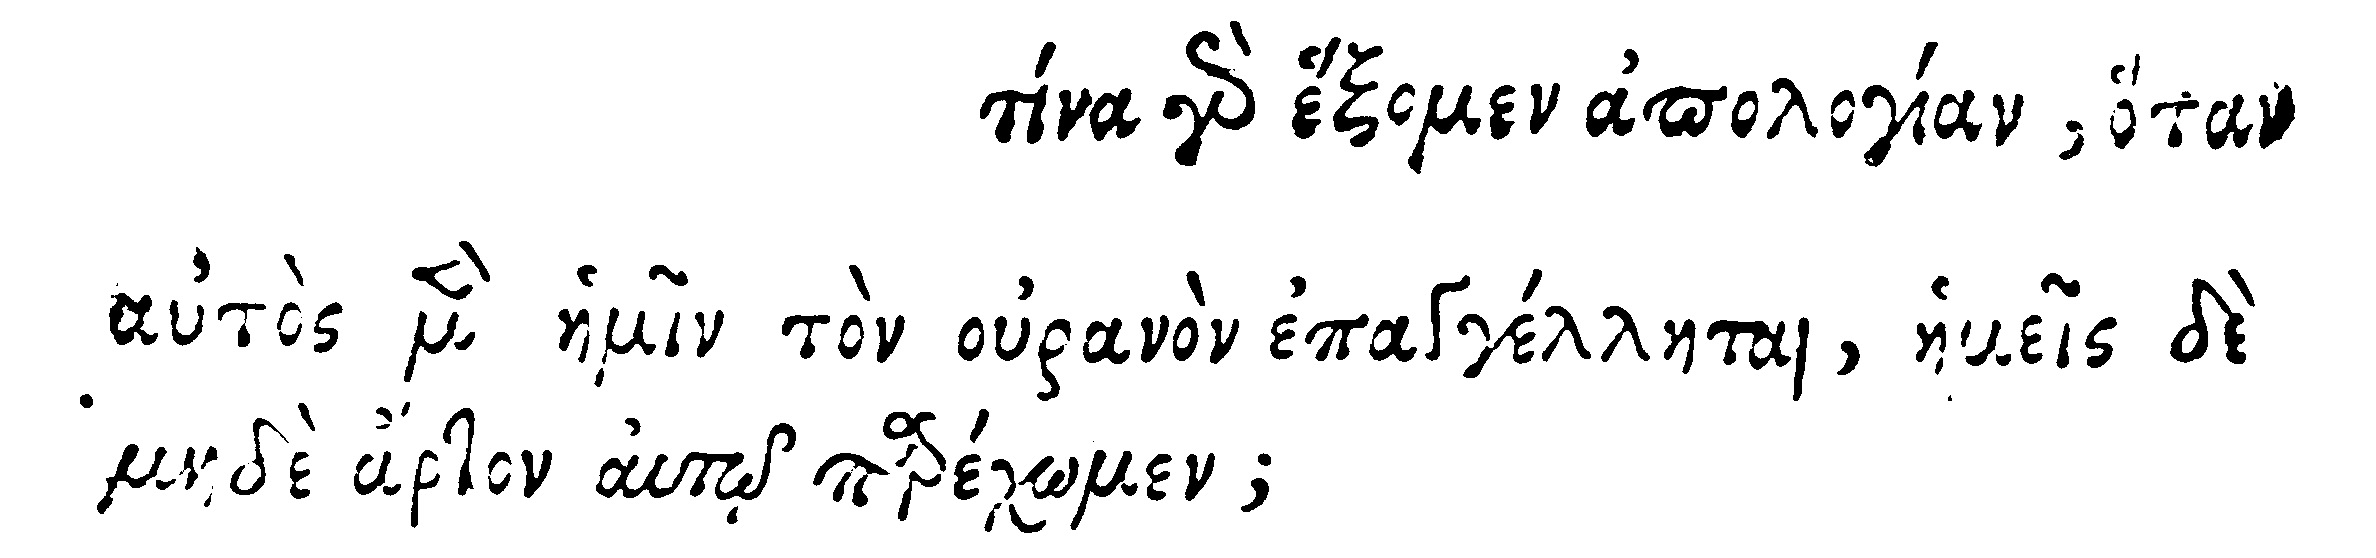 τίνα γὰρ ἕξομεν ἀπολογίαν, ὅταν
αὐτὸς μὲν ἡμῖν τὸν οὐρανὸν ἐπαγγέλληται, ἡμεῖς δὲ
μηδὲ ἄρτον αὐτῷ παρέχωμεν;